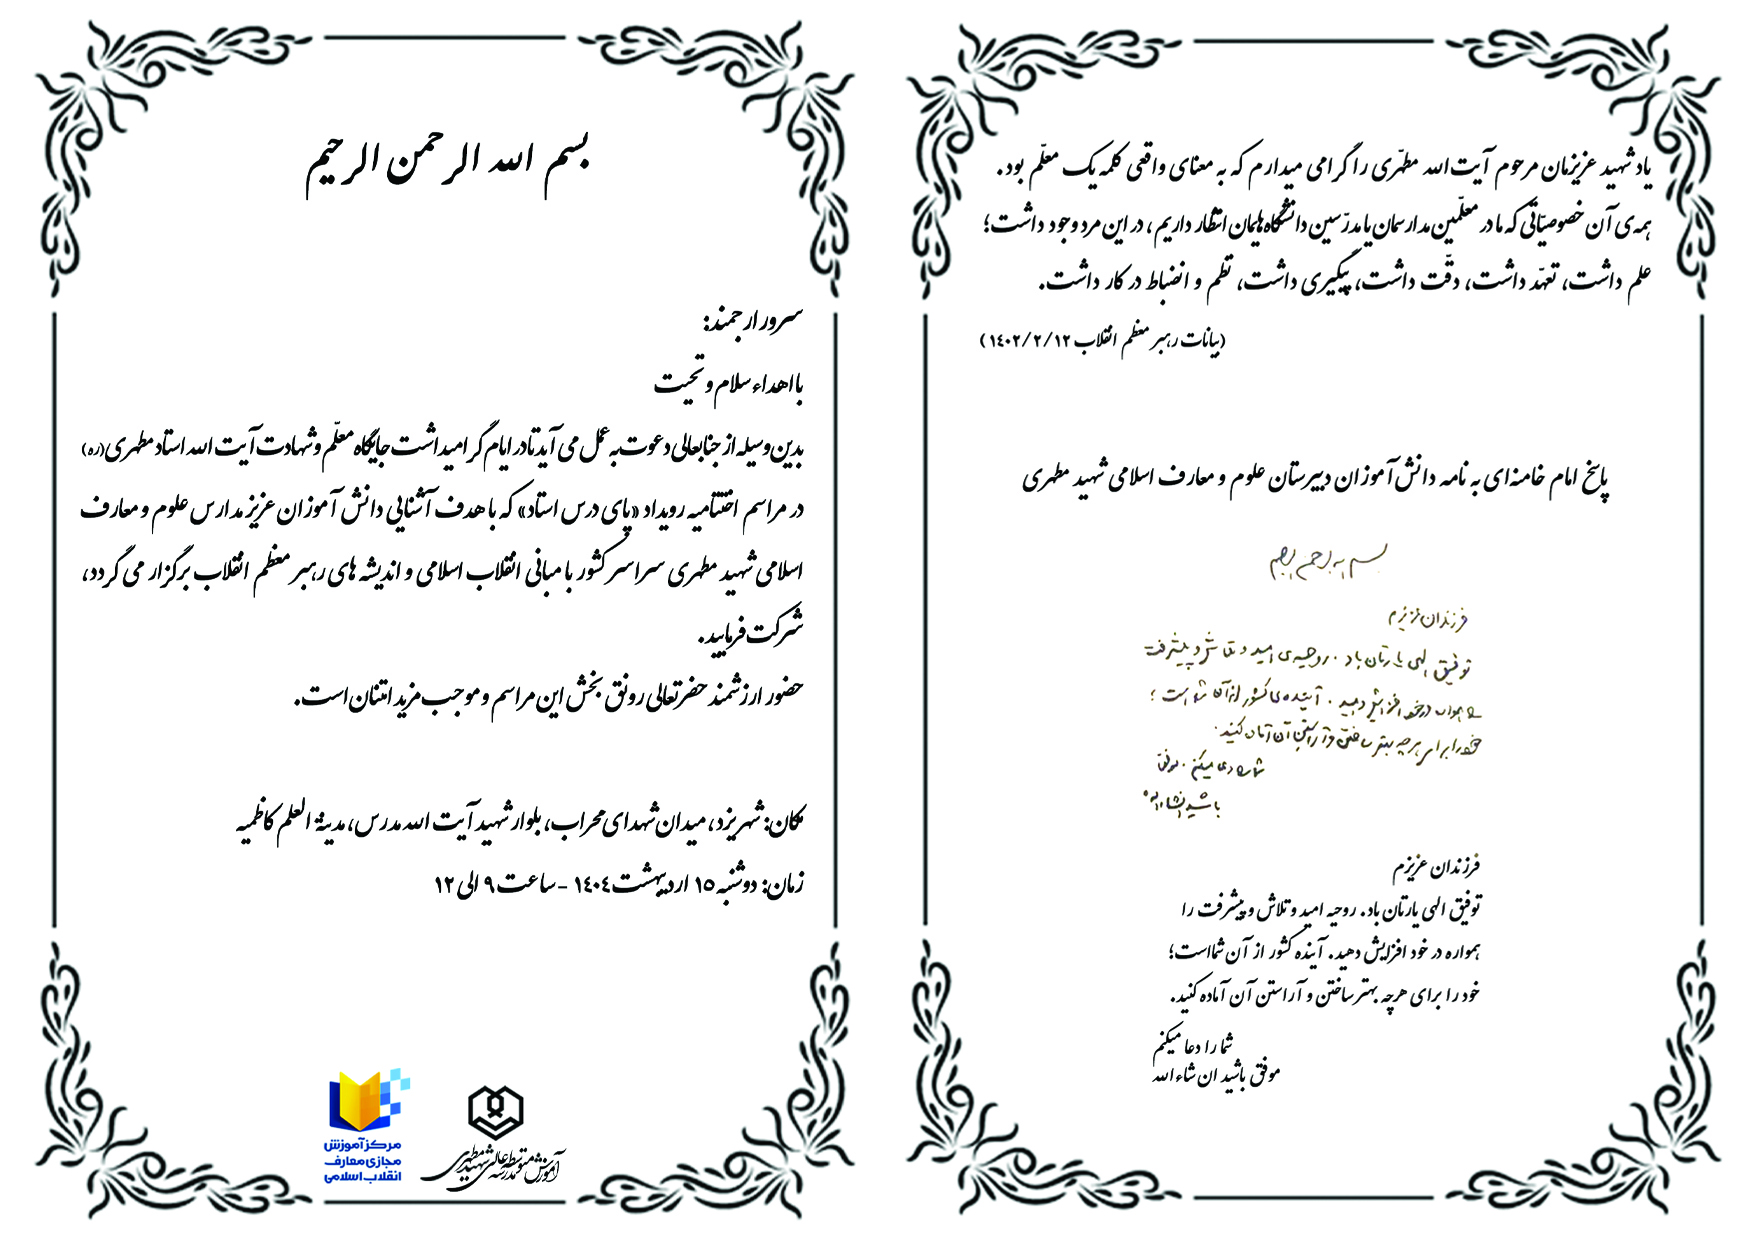 یاد شهید عزیزمان مرحوم آیت‌الله مطهّری را گرامی میدارم که به معنای واقعی کلمه یک معلّم بود.
همه‌ی آن خصوصیّاتی که ما در معلّمین مدارسمان یا مدرّسین دانشگاه‌هایمان انتظار داریم، در این مرد وجود داشت؛
علم داشت، تعهّد داشت، دقّت داشت، پیگیری داشت، نظم و انضباط در کار داشت.
(بیانات رهبر معظم انقلاب ۱۴۰۲/۲/۱۲)
پاسخ امام خامنه‌ای به نامه دانش‌آموزان دبیرستان علوم و معارف اسلامی شهید مطهری
بسم الله الرحمن الرحیم
فرزندان عزیزم
توفیق الهی یارتان باد. روحیه‌ی امید و تلاش و پیشرفت
را همواره در خود افزایش دهید. آینده‌ی کشور از آن شما است؛
خود را برای هرچه بهتر ساختن و آراستن آن آماده کنید.
شما را دعا میکنم. موفق
باشید انشاءالله
فرزندان عزیزم
توفیق الهی یارتان باد. روحیه امید و تلاش و پیشرفت را
همواره در خود افزایش دهید. آینده کشور از آن شمااست؛
خود را برای هرچه بهتر ساختن و آراستن آن آماده کنید.
شما را دعا میکنم
موفق باشید ان شاءالله
بسم الله الرحمن الرحیم
سرور ارجمند:
با اهداء سلام و تحیت
بدین وسیله از جنابعالی دعوت به عمل می آید تا در ایام گرامیداشت جایگاه معلّم و شهادت آیت الله استاد مطهری(ره)
در مراسم اختتامیه رویداد «پای درس استاد» که با هدف آشنایی دانش آموزان عزیز مدارس علوم و معارف
اسلامی شهید مطهری سراسر کشور با مبانی انقلاب اسلامی و اندیشه های رهبر معظم انقلاب برگزار می گردد،
شرکت فرمایید.
حضور ارزشمند حضرتعالی رونق بخش این مراسم و موجب مزید امتنان است.
مکان: شهر یزد، میدان شهدای محراب، بلوار شهید آیت الله مدرس، مدینة العلم کاظمیه
زمان: دوشنبه ۱۵ اردیبهشت ۱۴۰۴ - ساعت ۹ الی ۱۲
مرکز آموزش
مجازی معارف
انقلاب اسلامی
آموزش متوسطه
مدرسه عالی شهید مطهری